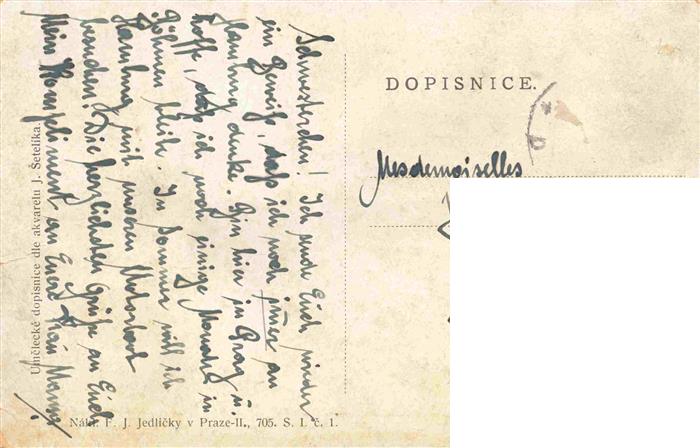 DOPISNICE.
Mesdemoiselles
Schwesterchen! Ich sende Euch wieder
ein Beweiß, daß ich noch immer an
Hamburg denke. Bin hier in Prag u.
hoffe, daß ich noch einige Monate in
Böhmen bleibe. In Sommer will ich
Hamburg mit meinen Motorboot
besuchen. Die herzlichsten Grüße an Euch
Mein Kompliment an Euere Frau Mama!
Umělecké dopisnice dle akvarelu J. Šetelíka.
Nákl. F. J. Jedličky v Praze-II., 705. S. I. č. 1.